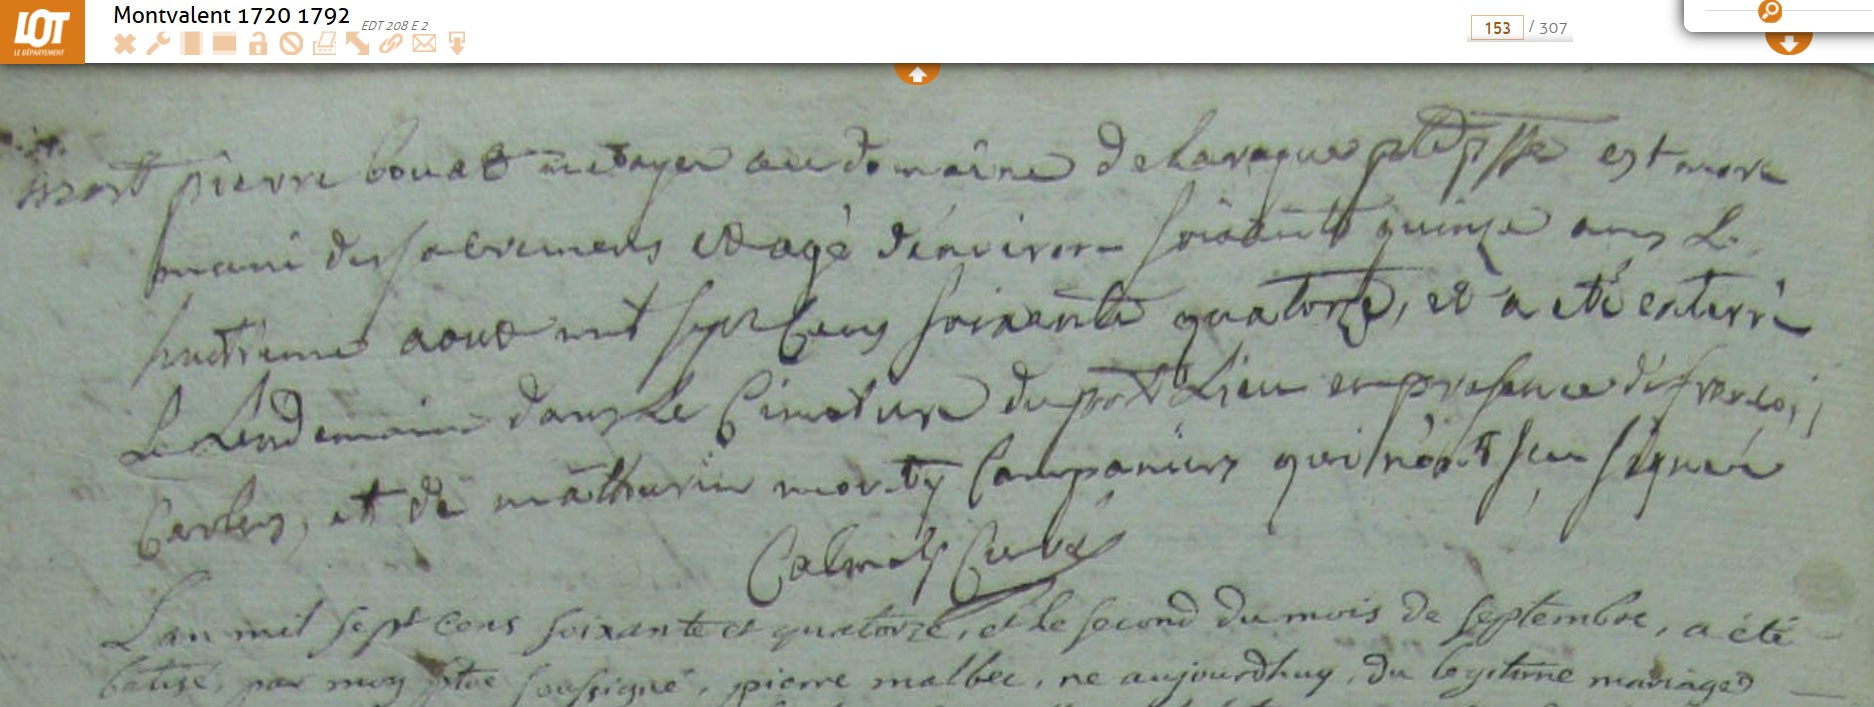 LOT
LE DÉPARTEMENT
Montvalent 1720 1792
EDT 208 E 2
153 / 307
mort pierre bouat metayer au domaine de Lavaque pnte psse est mort
muni des sacremens et agé d'environ soixante quinze ans Le
huitieme aout mil sept Cens soixante quatorze, et a eté enterré
Le Lendemain dans Le Cimetiere du prt Lieu en presence de francois
, et de mathurin qui n'ont seu signer
Calmels Curé
L'an mil sept cens soixante et quatorze, et le second du mois de septembre, a été
batisé, par moy ptre soussigné, pierre malbec, né aujourdhuy, du legitime mariage